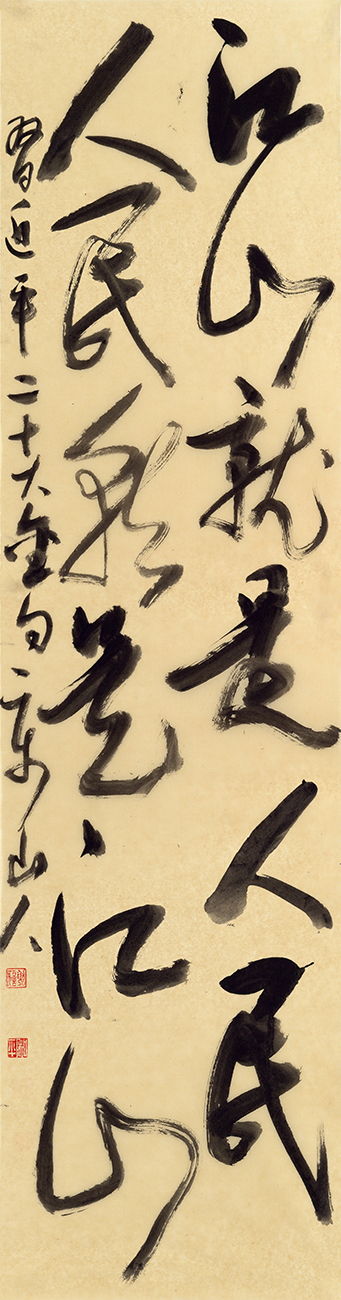 江山就是人民
人民就是江山
習近平二十大金句 山人